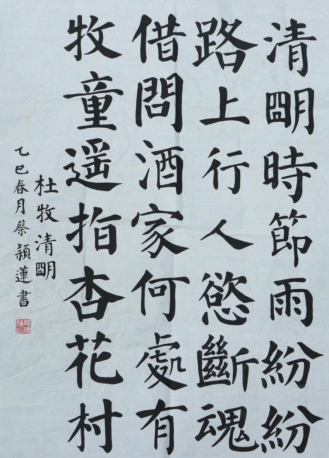 清朙時節雨紛紛
路上行人慾斷魂
借問酒家何處有
牧童遥指杏花村
杜牧清朙
乙巳春月蔡穎蓮書